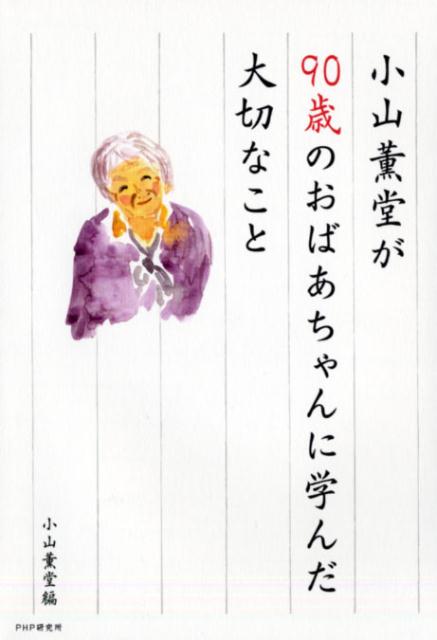 小山薫堂が
90歳のおばあちゃんに学んだ
大切なこと
小山薫堂編
PHP研究所